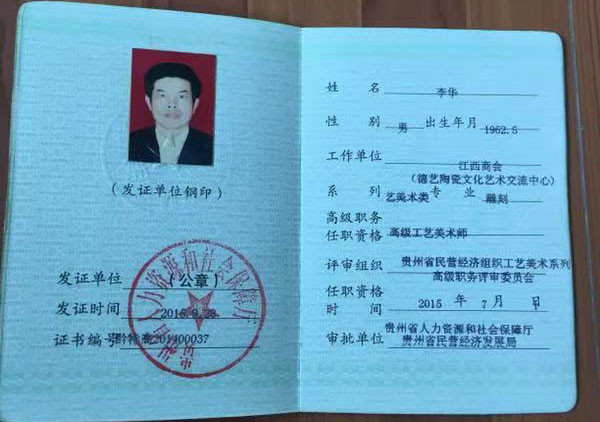 (发证单位钢印)
发证单位 (公章)
发证时间 2015.9.28
证书编号
人力资源和社会保障厅
姓 名 李华
性 别 男 出生年月 1962.5
工作单位 江西商会
(德艺陶瓷文化艺术交流中心)
系 列 艺美术类 专 业 雕刻
高级职务
任职资格 高级工艺美术师
评审组织 贵州省民营经济组织工艺美术系列
高级职务评审委员会
任职资格
时 间 2015 年 7 月 日
审批单位 贵州省人力资源和社会保障厅
贵州省民营经济发展局